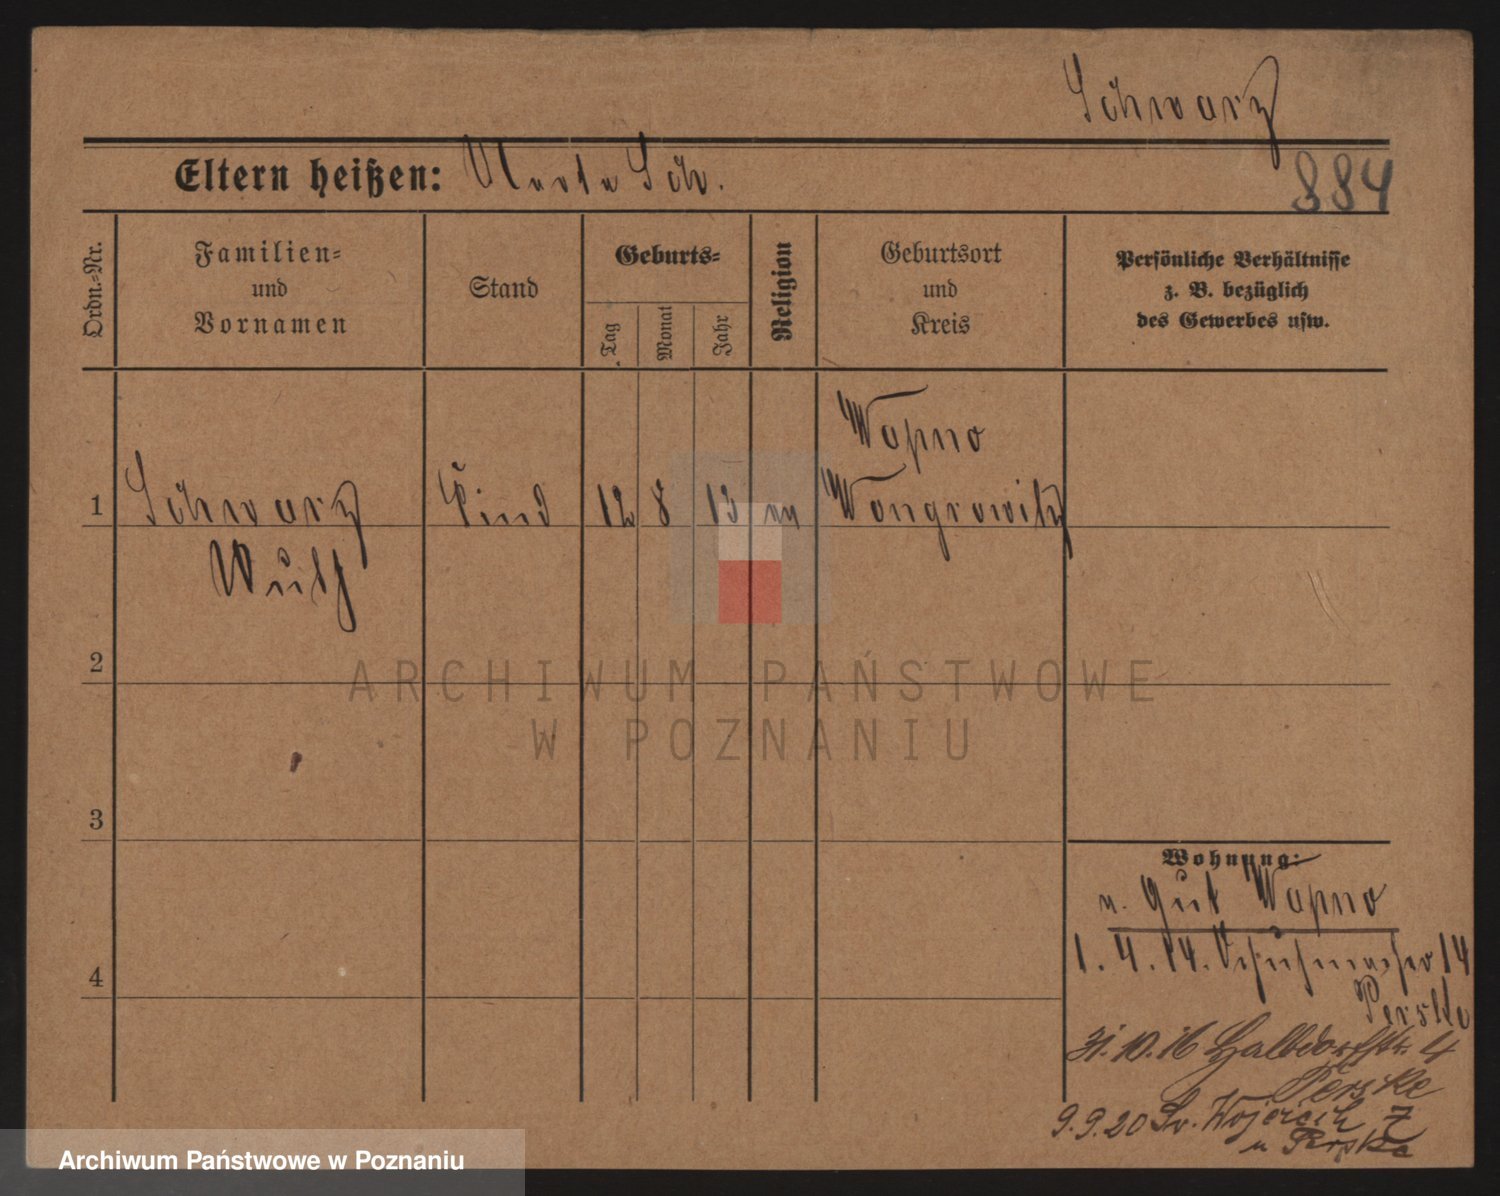 Schwarz
884
Eltern heißen: Marta Sch.
Ordn.-Nr.
Familien-
und
Vornamen
Stand
Geburts-
Tag
Monat
Jahr
Religion
Geburtsort
und
Kreis
Persönliche Verhältnisse
z. B. bezüglich
des Gewerbes usw.
Wapno
1 Schwarz Kind 12 8 13 Wongrowitz
2
ARCHIWUM PAŃSTWOWE
W POZNANIU
3
Wohnung:
n. Gut Wapno
4
1. 4. 14. 14
Perske
31. 10. 16 Halbdorfstr. 4
Perske
9. 9. 20 Św. Wojciech 7
Perske
Archiwum Państwowe w Poznaniu